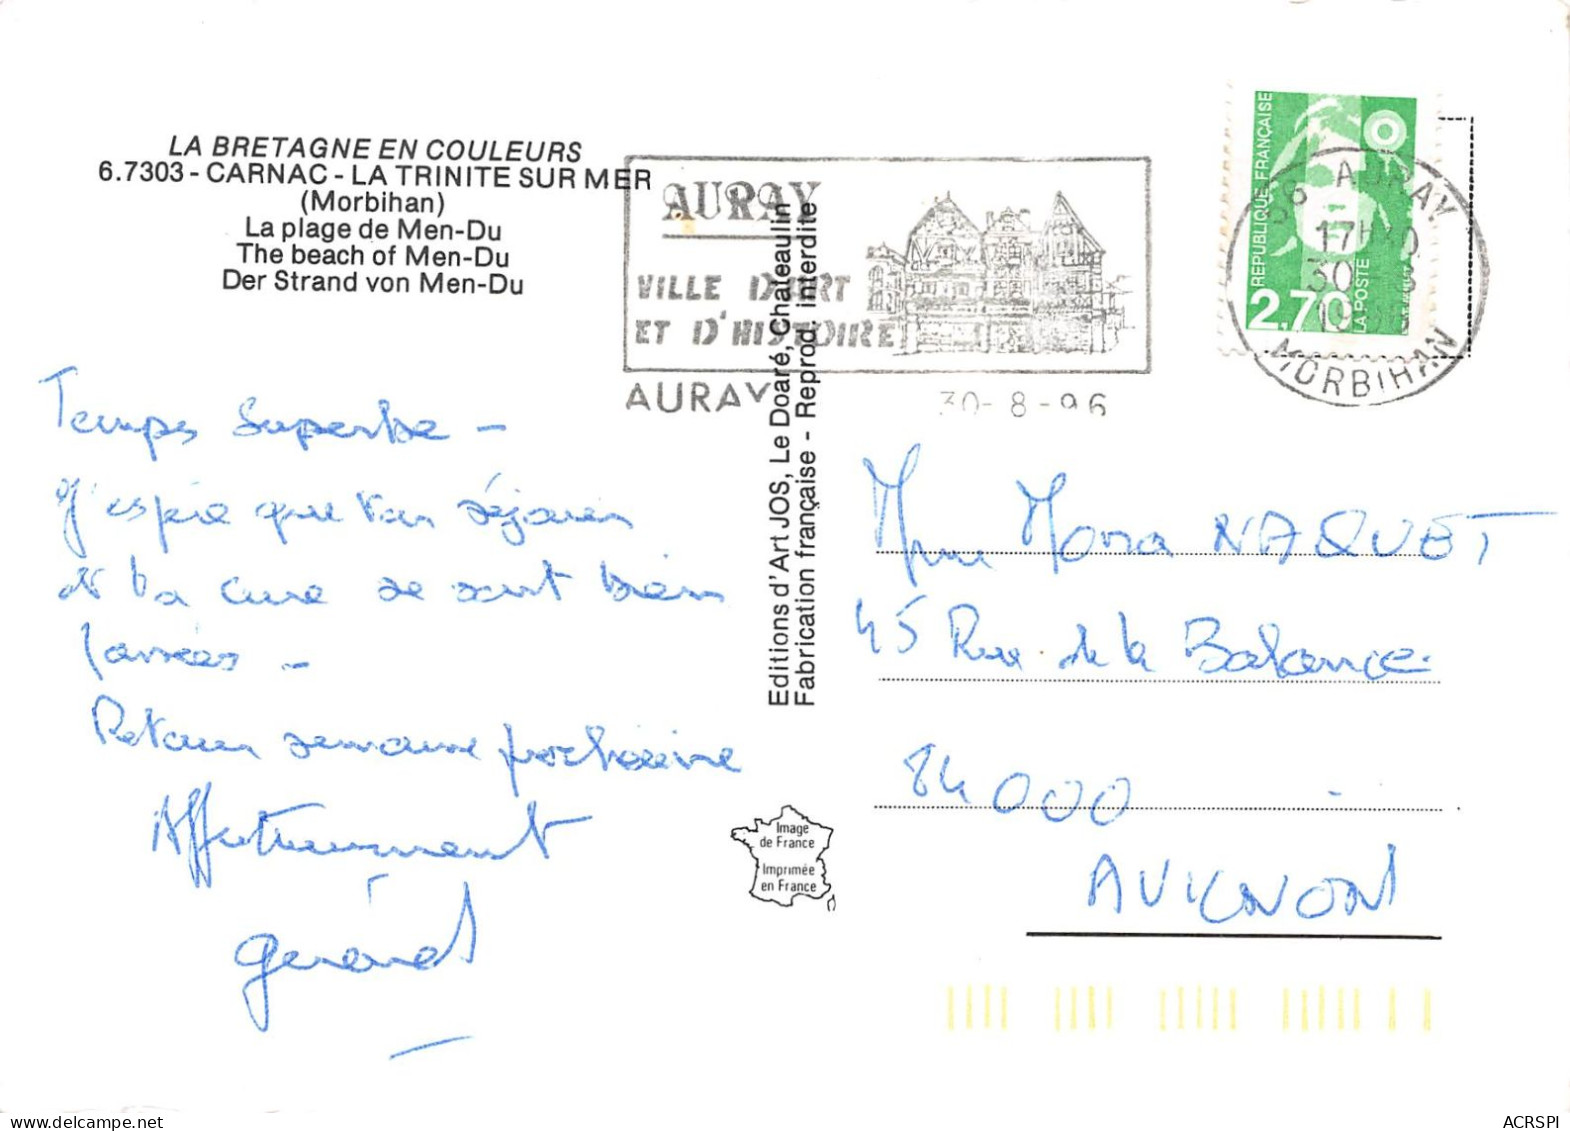 LA BRETAGNE EN COULEURS
6.7303 - CARNAC - LA TRINITE SUR MER
(Morbihan)
La plage de Men-Du
The beach of Men-Du
Der Strand von Men-Du
AURAY
VILLE D'ART
ET D'HISTOIRE
AURAY 30-8-96
REPUBLIQUE FRANÇAISE
2,70
LA POSTE
56 AURAY
30 8
MORBIHAN
Temps Superbe -
J'espère que ton séjour
et ta cure se sont bien
passées -
Retour semaine prochaine
Affectueusement
Gérard
Editions d'Art JOS, Le Doaré, Chateaulin
Fabrication française - Reprod. interdite
Mme NAQUET
45 Rue de la Balance
84000
AVIGNON
Image
de France
Imprimée
en France
ACRSPI